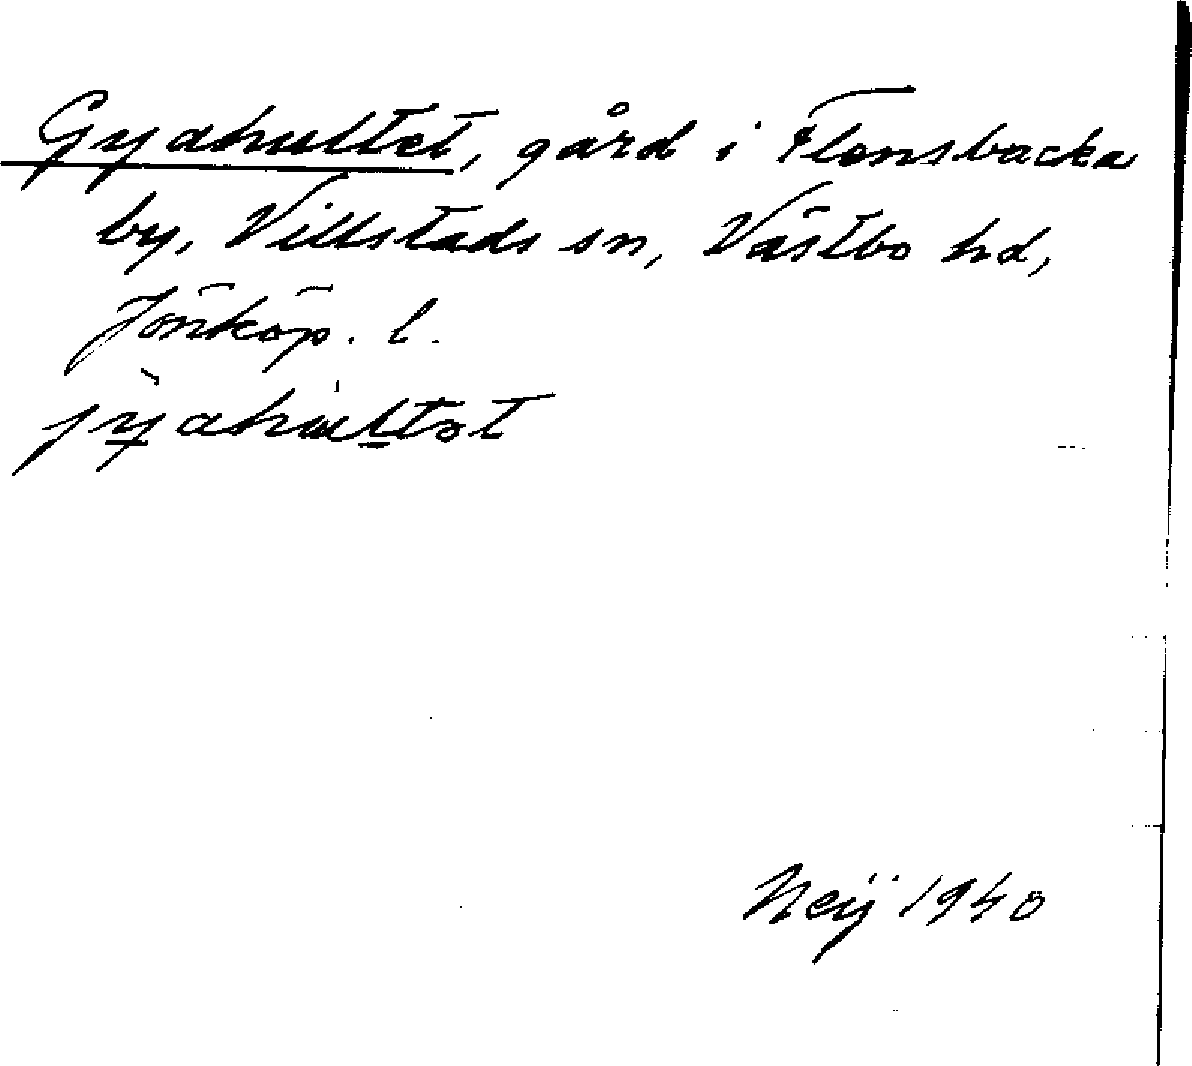 Gyahultet, gård i Flensbacka
by, Villstads sn, Västbo hd,
Jönköp. l.
jỳ̠ahu̍l̠tət
Neij 1940